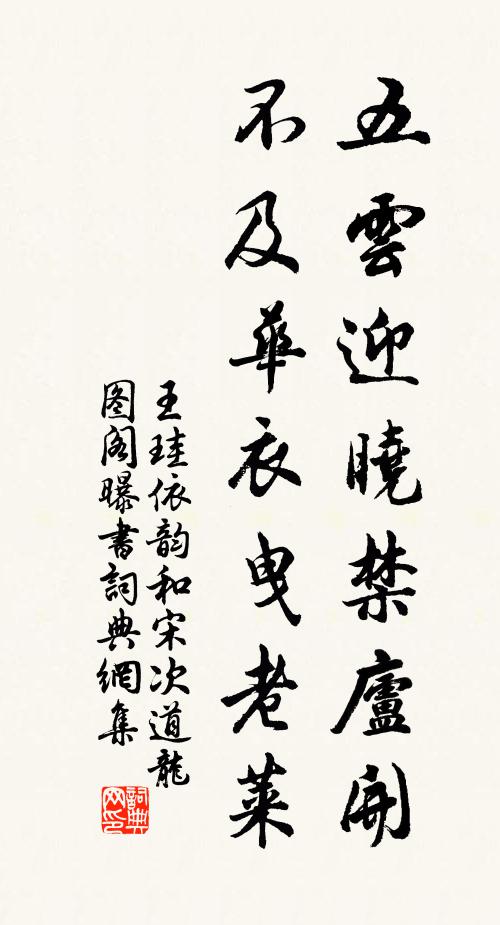 五雲迎曉禁廬開
不及華衣曳老萊
王珪依韵和宋次道龍
图阁曝書詞典網集
詞典网印